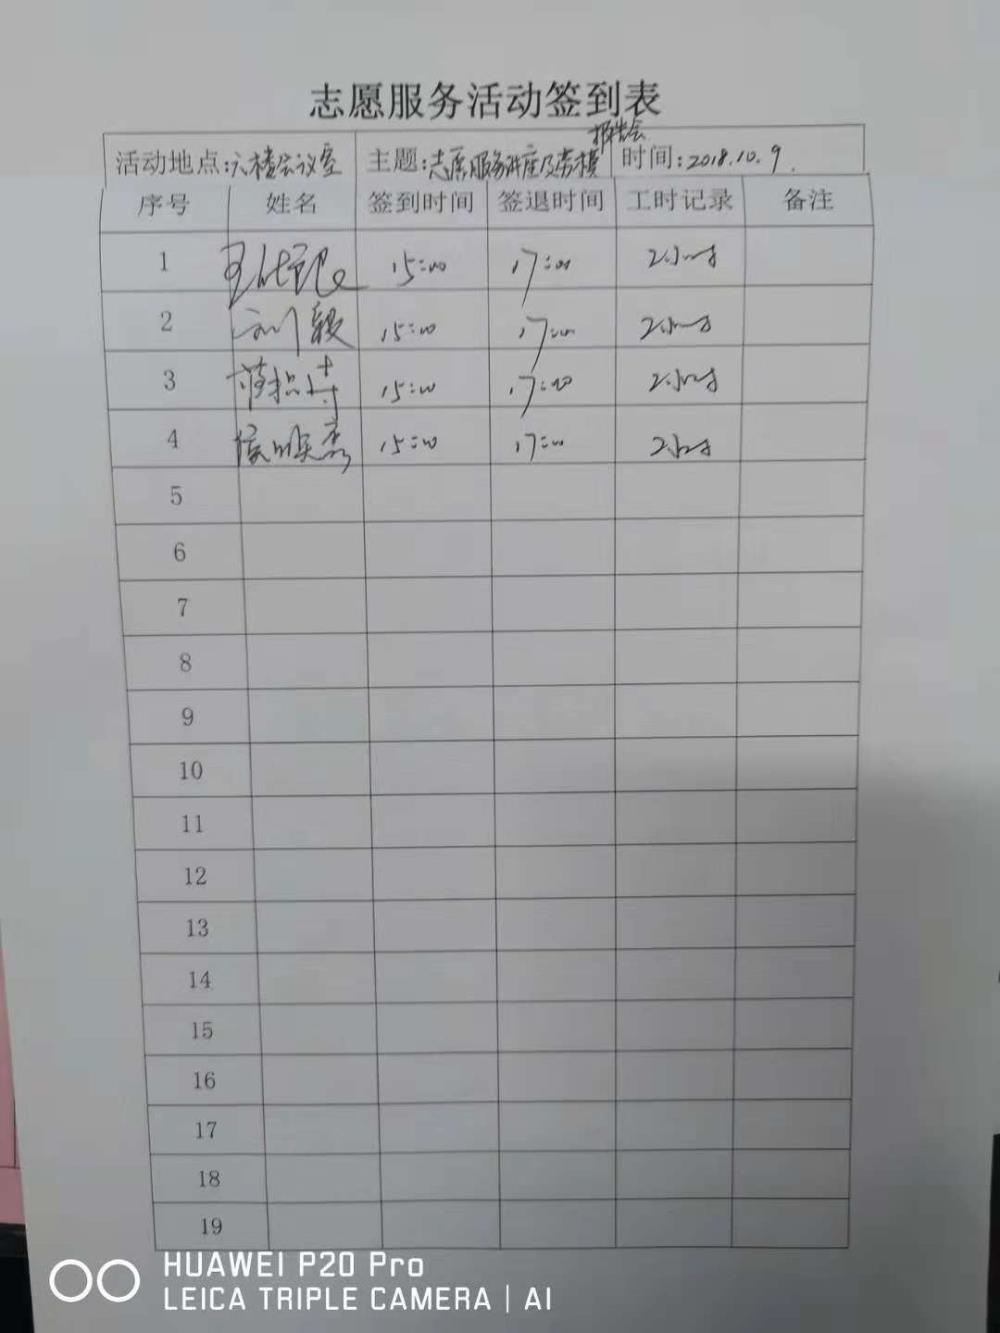 志愿服务活动签到表
报告会
活动地点:六楼会议室 主题:志愿服务讲座及劳模 时间:2018.10.9.
序号 姓名 签到时间 签退时间 工时记录 备注
1 15:00 17:00 2小时
2 刘毅 15:00 17:00 2小时
3 15:00 17:00 2小时
4 15:00 17:00 2小时
5
6
7
8
9
10
11
12
13
14
15
16
17
18
19
HUAWEI P20 Pro
LEICA TRIPLE CAMERA | AI